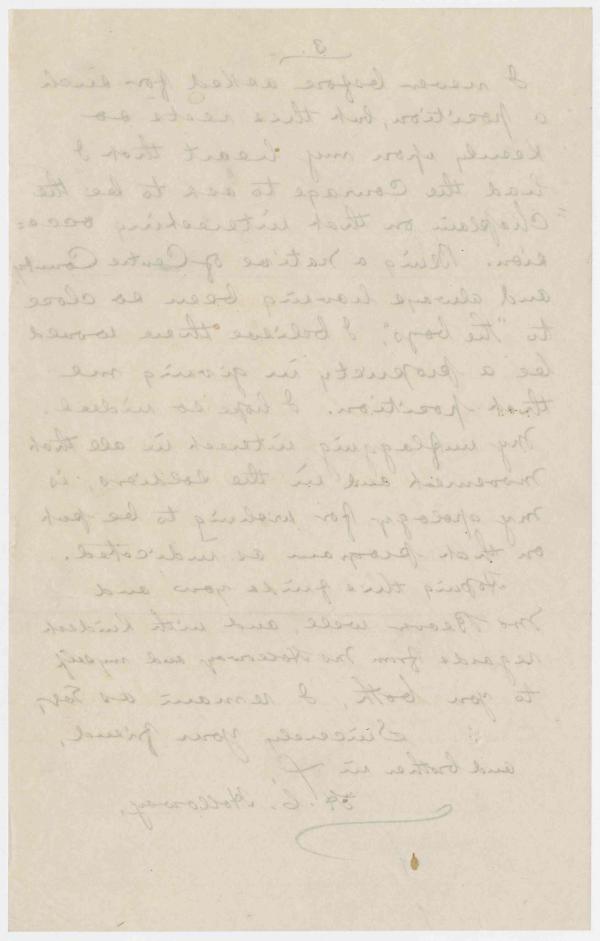 3.
I never before asked for such
a position, but this rests so
heavily upon my heart that I
had the courage to ask to be the
"Chaplain on that interesting occa=
sion. Being a native of Centre County
and always having been so close
to "the boys", I believe there would
be a propriety in giving me
that position. I hope so indeed.
My unflagging interest in all that
movement and in the soldiers, is
my apology for wishing to be put
on that program as indicated.
Hoping this finds you and
Mrs Beaver well, and with kindest
regards from Mrs Holloway and myself
to you both, I remain as Ever,
Sincerely your friend,
and brother in
H. C. Holloway.